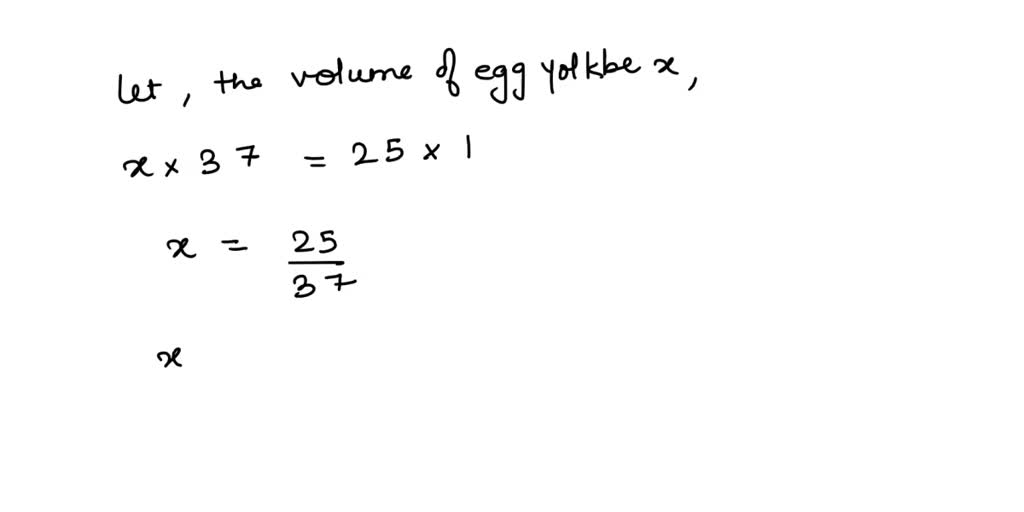 Let, the volume of egg yolkbe x,
x × 37 = 25 × 1
x = 25/37
x